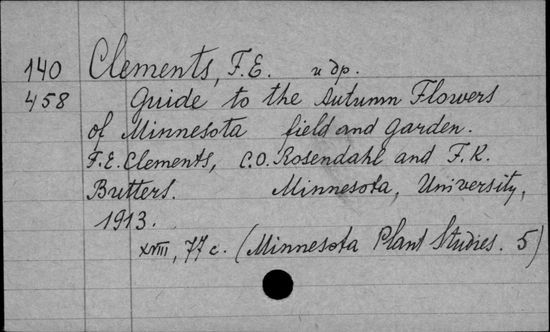 140 Clements, F.E. и др.
458 Guide to the Autumn Flowers
of Minnesota field and garden.
F.E. Clements, C.O. Rosendahl and F.K.
Butters. Minnesota, University,
1913.
xviii, 77 c. (Minnesota Plant Studies. 5)